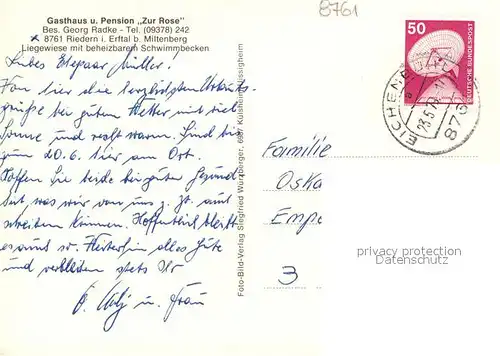 Gasthaus u. Pension „Zur Rose"
Bes. Georg Radke - Tel. (09378) 242
x 8761 Riedern i. Erftal b. Miltenberg
Liegewiese mit beheizbarem Schwimmbecken
8761
50
DEUTSCHE BUNDESPOST
EICHENB
876
Liebes Ehepaar Müller!
Von hier die herzlichsten Urlaubs-
grüße bei gutem Wetter mit viel
Sonne und recht warm. Sind bis
zum 20.6. hier am Ort.
Hoffen Sie beide bei guter Gesund-
heit was wir von uns z. Zt. auch
schreiben können. Hoffentlich bleibt
es auch so. Weiterhin alles Gute
und verbleiben stets Ihr
u. Frau
Foto-Bild-Verlag Siegfried Würzberger, 6981 Külsheim-Hissigheim
Familie
Oska
Empe
3
privacy protection
Datenschutz